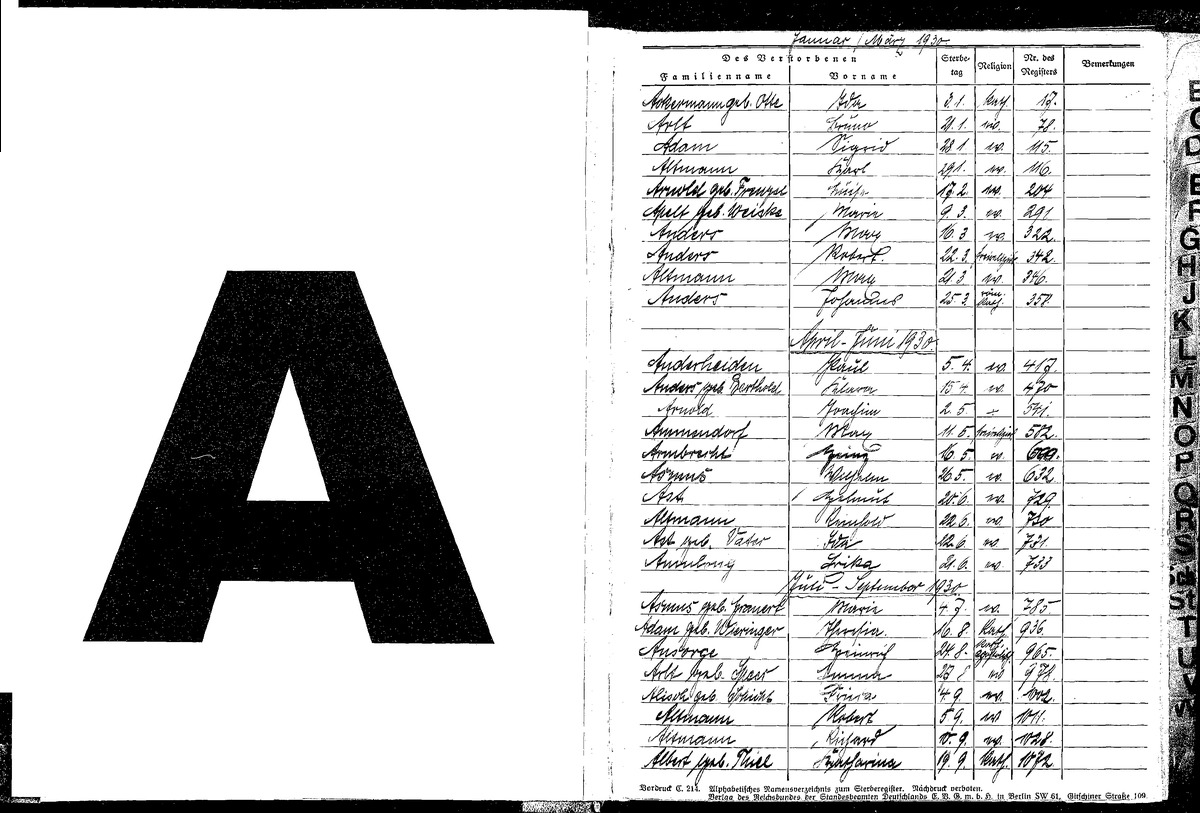 A
Januar / März 1930
Des Verstorbenen Sterbe- Religion Nr. des Bemerkungen
Familienname Vorname tag Registers
Ackermann geb. Otte Ida 3.1. kath 17.
Arlt Bruno 21.1. ev. 78.
Adam Sigrid 28.1 ev. 115.
Altmann Karl 29.1. ev. 116.
Arnold geb. Frenzel 17.2. ev. 204
Apelt geb. Weiske Marie 9.3. ev. 291
Anders Max 16.3 ev. 322.
Anders Robert. 22.3. 342.
Altmann Max 21.3. ev. 346.
Anders Johannes 25.3. röm. kath. 358.
April - Juni 1930.
Anderheiden Paul 5.4. ev. 417.
Anders geb. Berthold Klara 15.4. ev. 470
Arnold Joachim 2.5. - 541.
Ammendorf Max 11.5. 582.
Armbrecht 16.5. ev.
Asmus Wilhelm 26.5. ev. 632
Ast Helmut 20.6. ev. 729.
Altmann Reinhold 22.6. ev. 730
Ast geb. Vater Ida 22.6. ev. 731.
Erika 21.6. ev. 733
Juli - September 1930.
Asmus geb. Marie 4.7. ev. 785
Adam geb. Wieringer Theresia. 16.8. kath. 936.
Ansorge Heinrich 24.8. 965.
Arlt geb. Emma 27.8 ev 971.
Alisch geb. Frieda 4.9. ev. 1002.
Altmann Robert 5.9. ev 1011.
Altmann Richard 10.9. ev. 1028.
Albert geb. Thiel Katharina 19.9. kath. 1072.
Vordruck C. 214. Alphabetisches Namensverzeichnis zum Sterberegister. Nachdruck verboten.
Verlag des Reichsbundes der Standesbeamten Deutschlands E. V. G. m. b. H. in Berlin SW 61, Gitschiner Straße 109.
G
H
J
K
L
M
N
O
P
Q
R
S
T
U
V
W